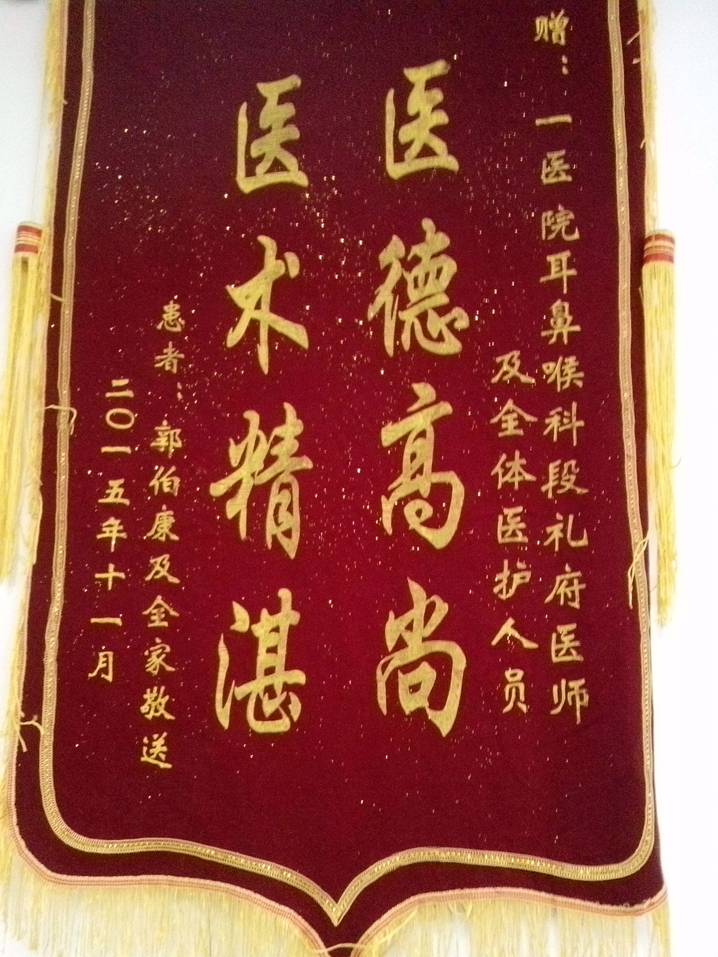 赠：一医院耳鼻喉科段礼府医师
及全体医护人员
医德高尚
医术精湛
患者：郭伯康及全家敬送
二〇一五年十一月